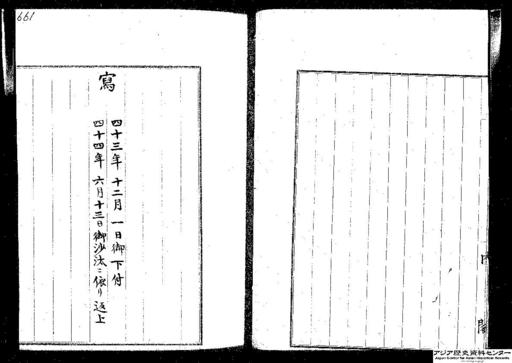 661
寫
四十三年十二月一日御下付
四十四年六月十三日御沙汰ニ依リ返上
内閣
アジア歴史資料センター
Japan Center for Asian Historical Records